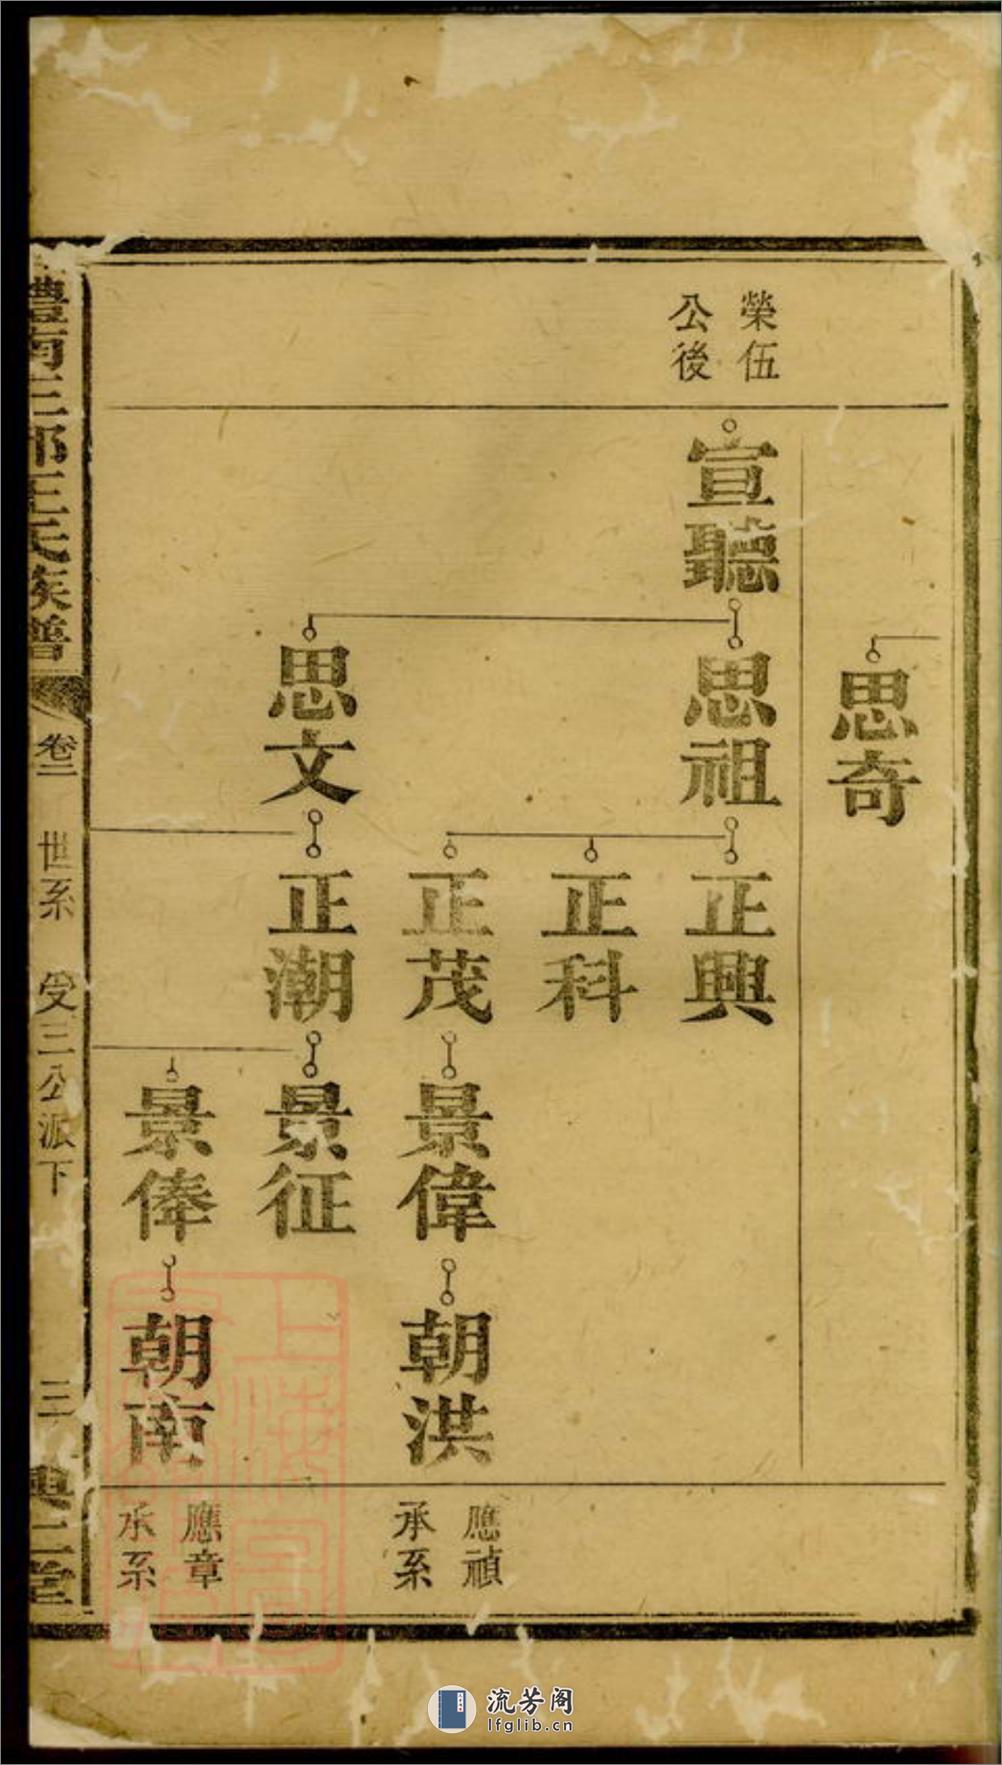 思奇
榮伍
公後
宣聽
思祖
思文
正興
正科
正茂
正潮
景偉
景征
景俸
朝洪
朝南
應禎
承系
應章
承系
澧南三郎王氏族譜
卷二
世系
受三公派下
三
興仁堂
流芳阁
lfglib.cn